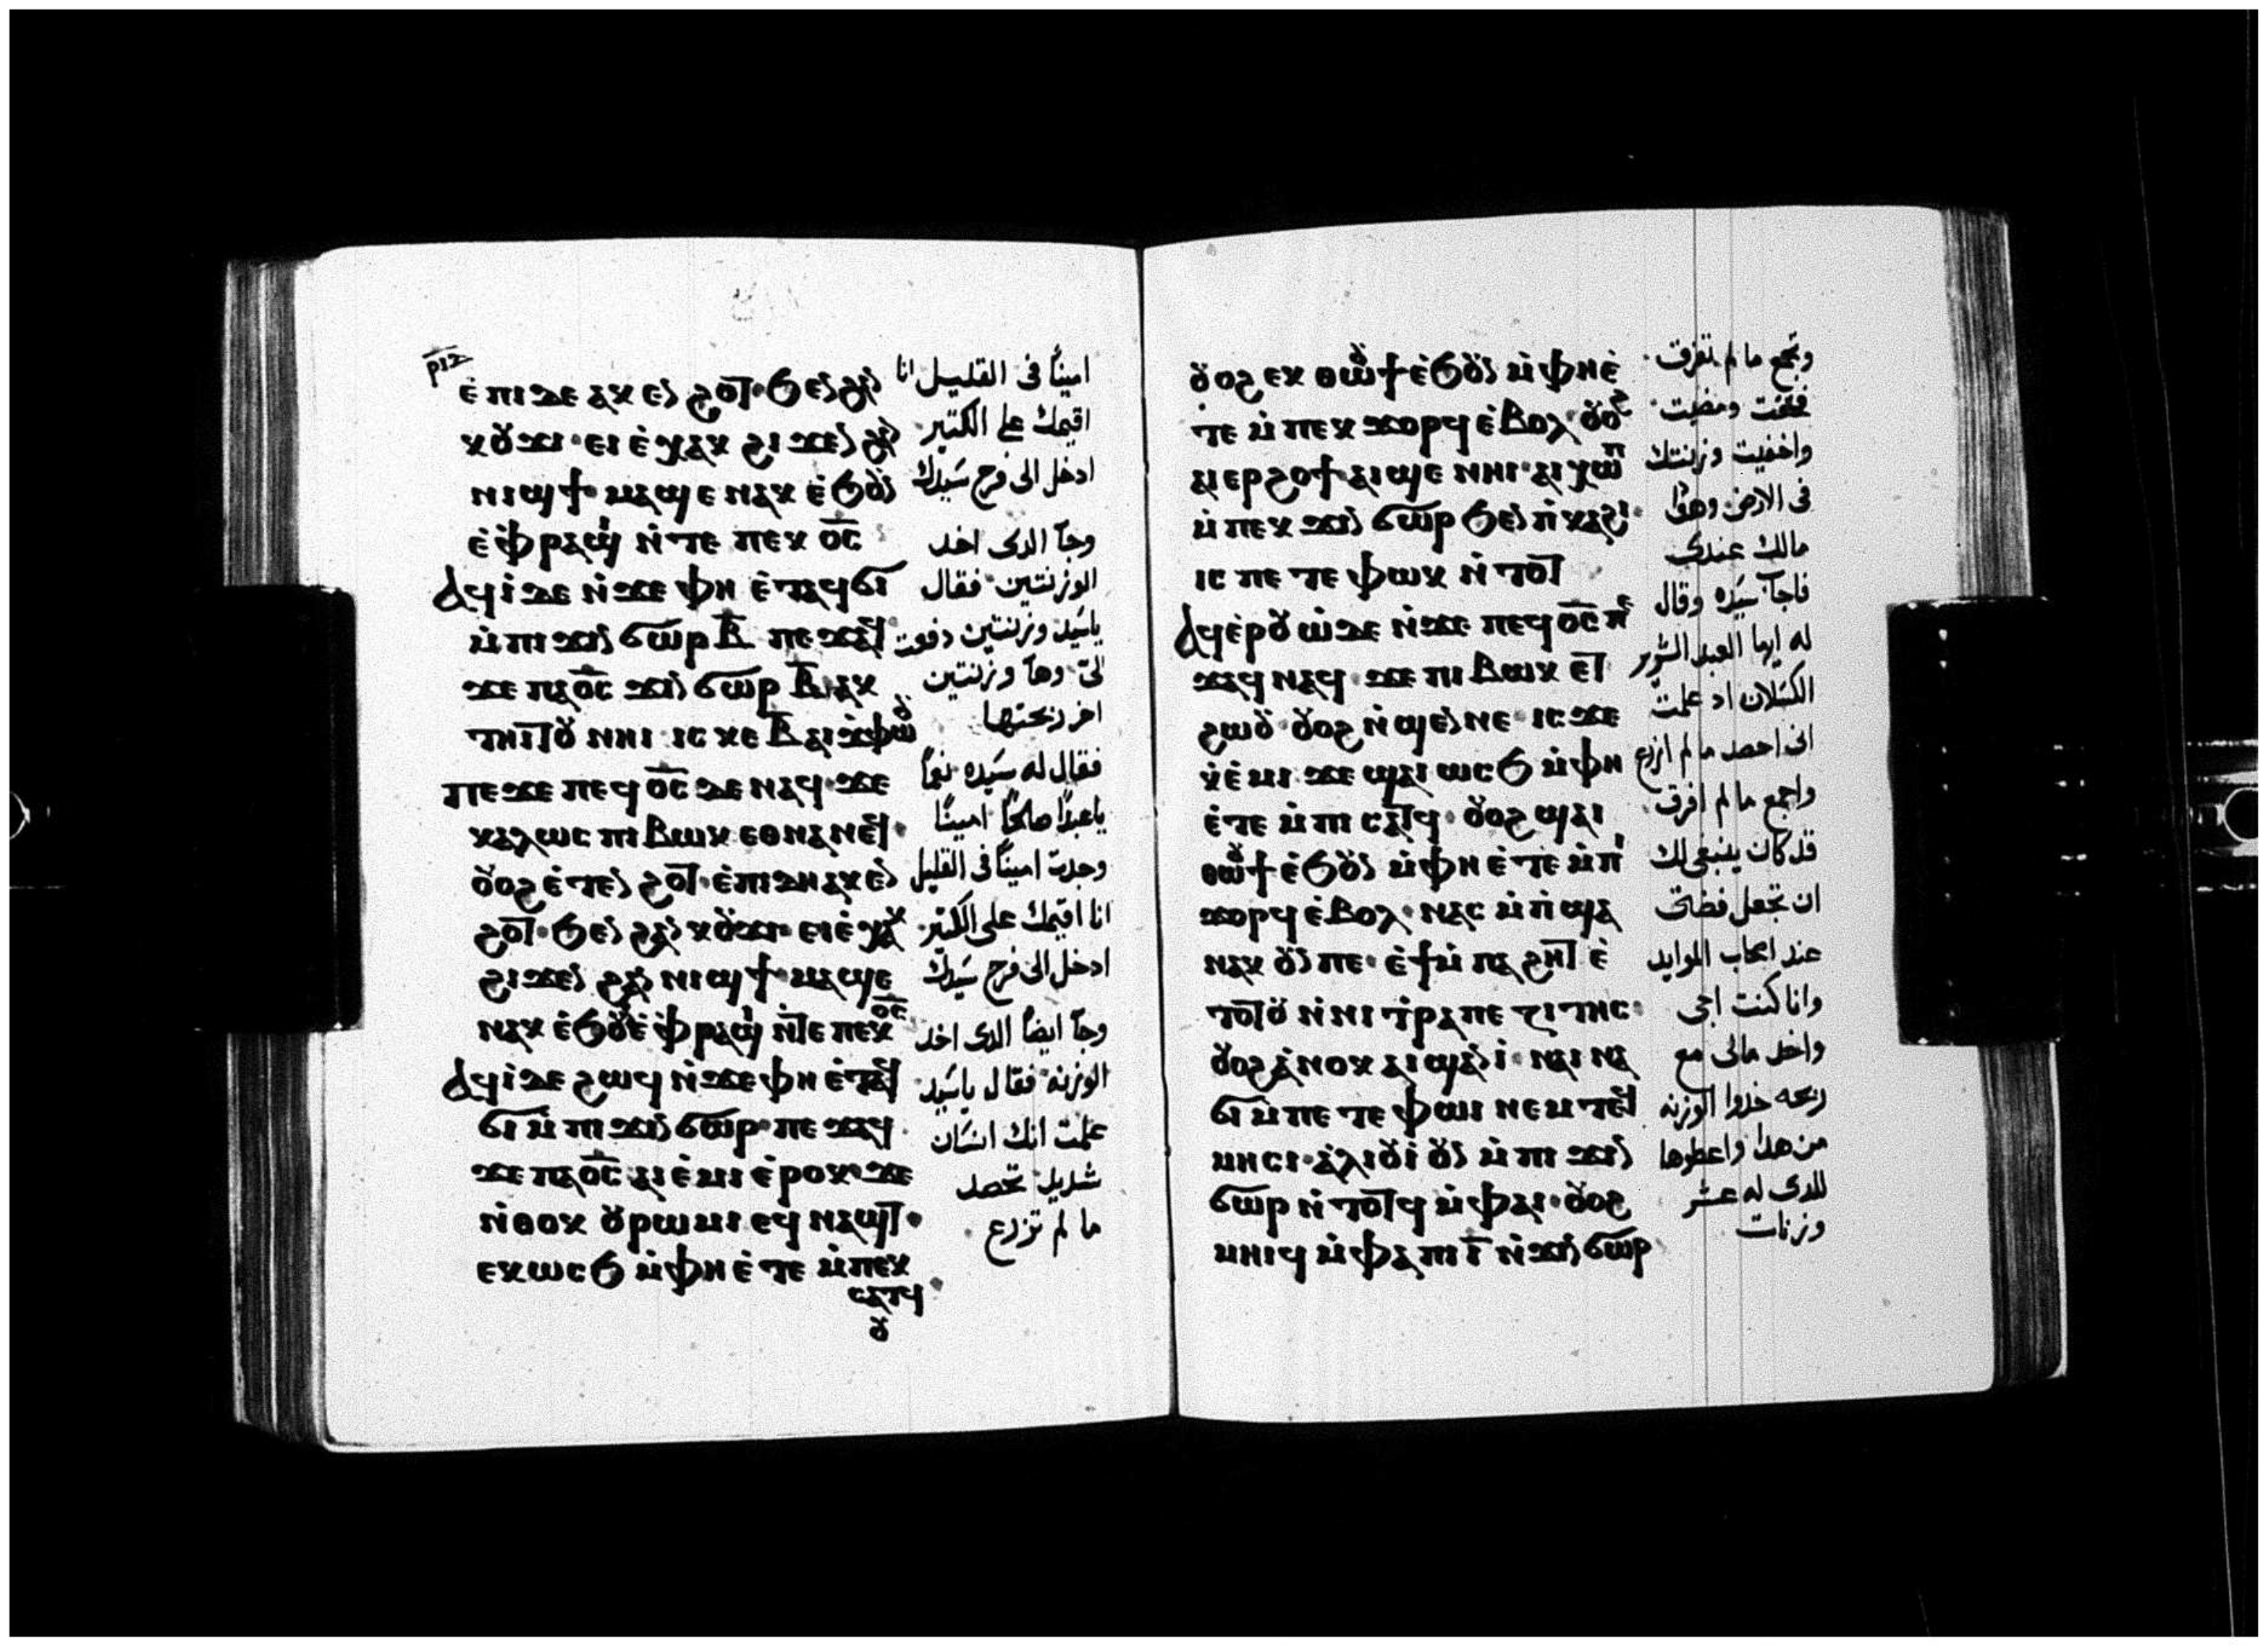 ⲣⲓⲍ
ⲉ̀ⲡⲓⲇⲉ ⲁⲕ ⲉⲛ ϩⲟⲧ· ϧⲉⲛ ϩⲁⲛ
ⲕⲟⲩϫⲓ· ⲉⲓ ⲉ̀ⲭⲁⲕ ϩⲓϫⲉⲛ ϩⲁⲛ
ⲛⲓϣϯ· ⲙⲁϣⲉ ⲛⲁⲕ ⲉ̀ϧⲟⲩⲛ
ⲉ̀ⲫⲣⲁϣⲓ ⲛ̀ⲧⲉ ⲡⲉⲕ ⲟ̅ⲥ̅
ⲁϥⲓ̀ⲇⲉ ⲛ̀ϫⲉ ⲫⲏ ⲉ̀ⲧⲁϥϭⲓ
ⲙ̀ⲡⲓ ϫⲓⲛϭⲱⲣ ⲃ̅ ⲡⲉϫⲁϥ
ϫⲉ ⲡⲁⲟ̅ⲥ̅ ϫⲓⲛϭⲱⲣ ⲃ̅ ⲁⲕ
ⲧⲏⲓⲧⲟⲩ ⲛⲏⲓ· ⲓⲥ ⲕⲉ ⲃ̅ ⲁⲓϫ̀ⲫⲱⲟⲩ
ⲡⲉϫⲉ ⲡⲉϥ ⲟ̅ⲥ̅ ⲇⲉ ⲛⲁϥ· ϫⲉ
ⲕⲁⲗⲱⲥ ⲡⲓ ⲃⲱⲕ ⲉⲑⲛⲁⲛⲉϥ·
ⲟⲩⲟϩ ⲉ̀ⲧⲉⲛ ϩⲟⲧ· ⲉ̀ⲡⲓⲇⲏ ⲁⲕ ⲉⲛ
ϩⲟⲧ· ϧⲉⲛ ϩⲁⲛ ⲕⲟⲩϫⲓ· ⲉⲓⲉ̀ⲭⲁⲕ
ϩⲓϫⲉⲛ ϩⲁⲛ ⲛⲓϣϯ· ⲙⲁϣⲉ
ⲛⲁⲕ ⲉ̀ϧⲟⲩⲛ ⲉ̀ⲫⲣⲁϣⲓ ⲛ̀ⲧⲉ ⲡⲉⲕ ⲟ̅ⲥ̅
ⲁϥⲓ̀ⲇⲉ ϩⲱϥ ⲛ̀ϫⲉ ⲫⲏ ⲉ̀ⲧⲁϥ
ϭⲓ ⲙ̀ⲡⲓ ϫⲓⲛϭⲱⲣ· ⲡⲉϫⲁϥ·
ϫⲉ ⲡⲁⲟ̅ⲥ̅ ⲁⲓⲉ̀ⲙⲓ ⲉ̀ⲣⲟⲕ· ϫⲉ
ⲛ̀ⲑⲟⲕ ⲟⲩⲣⲱⲙⲓ ⲉϥ ⲛⲁϣⲧ·
ⲉⲕⲱⲥϧ ⲙ̀ⲫⲏ ⲉ̀ⲧⲉ ⲙ̀ⲡⲉⲕ
ⲥⲁⲧϥ·
ⲟⲩ
امينًا فى القليل انا
اقيمك على الكثير·
ادخل الى فرح سَيدك
وجآ الدى اخد
الوزنتين· فقال
ياسَيد وزنتين دفعت
لىّ· وهآ وزنتين
اخر ربحتها
فقال له سَيده نعمًا
ياعبدًا صالحًا امينًا
وجدت امينًا فى القليل
انا اقيمك على الكثير·
ادخل الى فرح سَيدك
وجآ ايضًا الدى اخد
الوزنه· فقال ياسَيد·
علمت انك انسَان
شديد· تحصد
ما لم تزرع·
ⲟⲩⲟϩ ⲉⲕ ⲑⲱⲟⲩϯ ⲉ̀ϧⲟⲩⲛ ⲙ̀ⲫⲏ ⲉ̀
ⲧⲉ ⲙ̀ⲡⲉⲕ ϫⲟⲣϥ ⲉ̀ⲃⲟⲗ· ⲟⲩⲟϩ
ⲁⲓⲉⲣϩⲟϯ· ⲁⲓϣⲉ ⲛⲏⲓ· ⲁⲓⲭⲱⲡ
ⲙ̀ⲡⲉⲕ ϫⲓⲛϭⲱⲣ ϧⲉⲛ ⲡ̀ⲕⲁϩⲓ·
ⲓⲥ ⲡⲉ ⲧⲉ ⲫⲱⲕ ⲛ̀ⲧⲟⲧ
ⲁϥⲉ̀ⲣⲟⲩⲱ̀ⲇⲉ ⲛ̀ϫⲉ ⲡⲉϥ ⲟ̅ⲥ̅ ⲡⲉ
ϫⲁϥ ⲛⲁϥ· ϫⲉ ⲡⲓ ⲃⲱⲕ ⲉⲧ
ϩⲱⲟⲩ· ⲟⲩⲟϩ ⲛ̀ϣⲉⲛⲛⲉ· ⲓⲥϫⲉ
ⲕ̀ⲉ̀ⲙⲓ· ϫⲉ ϣⲁⲓ ⲱⲥϧ ⲙ̀ⲫⲏ
ⲉ̀ⲧⲉ ⲙ̀ⲡⲓ ⲥⲁⲧϥ· ⲟⲩⲟϩ ϣⲁⲓ
ⲑⲱⲟⲩϯ ⲉ̀ϧⲟⲩⲛ ⲙ̀ⲫⲏ ⲉ̀ⲧⲉ ⲙ̀ⲡⲓ
ϫⲟⲣϥ ⲉ̀ⲃⲟⲗ· ⲛⲁⲥ ⲙ̀ⲡ̀ϣⲁ
ⲛⲁⲕ ⲟⲩⲛ ⲡⲉ· ⲉ̀ϯ ⲙ̀ⲡⲁ ϩⲁⲧ ⲉ̀
ⲧⲟⲧⲟⲩ ⲛ̀ⲛⲓ ⲧ̀ⲣⲁⲡⲉ ⲍⲓⲧⲏⲥ·
ⲟⲩⲟϩ ⲁ̀ⲛⲟⲕ ⲁⲓϣⲁⲛⲓ̀· ⲛⲁⲓ ⲛⲁ
ϭⲓ ⲙ̀ⲡⲉ ⲧⲉ ⲫⲱⲓ ⲛⲉⲙ ⲧⲉϥ
ⲙⲏⲥⲓ· ⲁ̀ⲗⲓⲟⲩⲓ̀ ⲟⲩⲛ ⲙ̀ⲡⲓ ϫⲓⲛ
ϭⲱⲣ ⲛ̀ⲧⲟⲧϥ ⲙ̀ⲫⲁⲓ· ⲟⲩⲟϩ
ⲙⲏⲓϥ ⲙ̀ⲫⲁ ⲡⲓ ⲓ̅ ⲛ̀ϫⲓⲛϭⲱⲣ
وتجمع ما لم تفرق·
فخفت ومضيت·
واخفيت وزنتك
فى الارض وهوذا
مالك عندى
فاجآ سَيده وقال
له ايها العبد الشرير
الكسَلان اد علمت
انى احصد ما لم ازرع
واجمع ما لم افرق·
قد كان ينبغى لك
ان تجعل فضتى
عند اصحاب الموايد
وانا كنت اجى
واخد مالى مع
ربحه خدوا الوزنه
من هدا واعطوها
للدى له عشر
وزنات